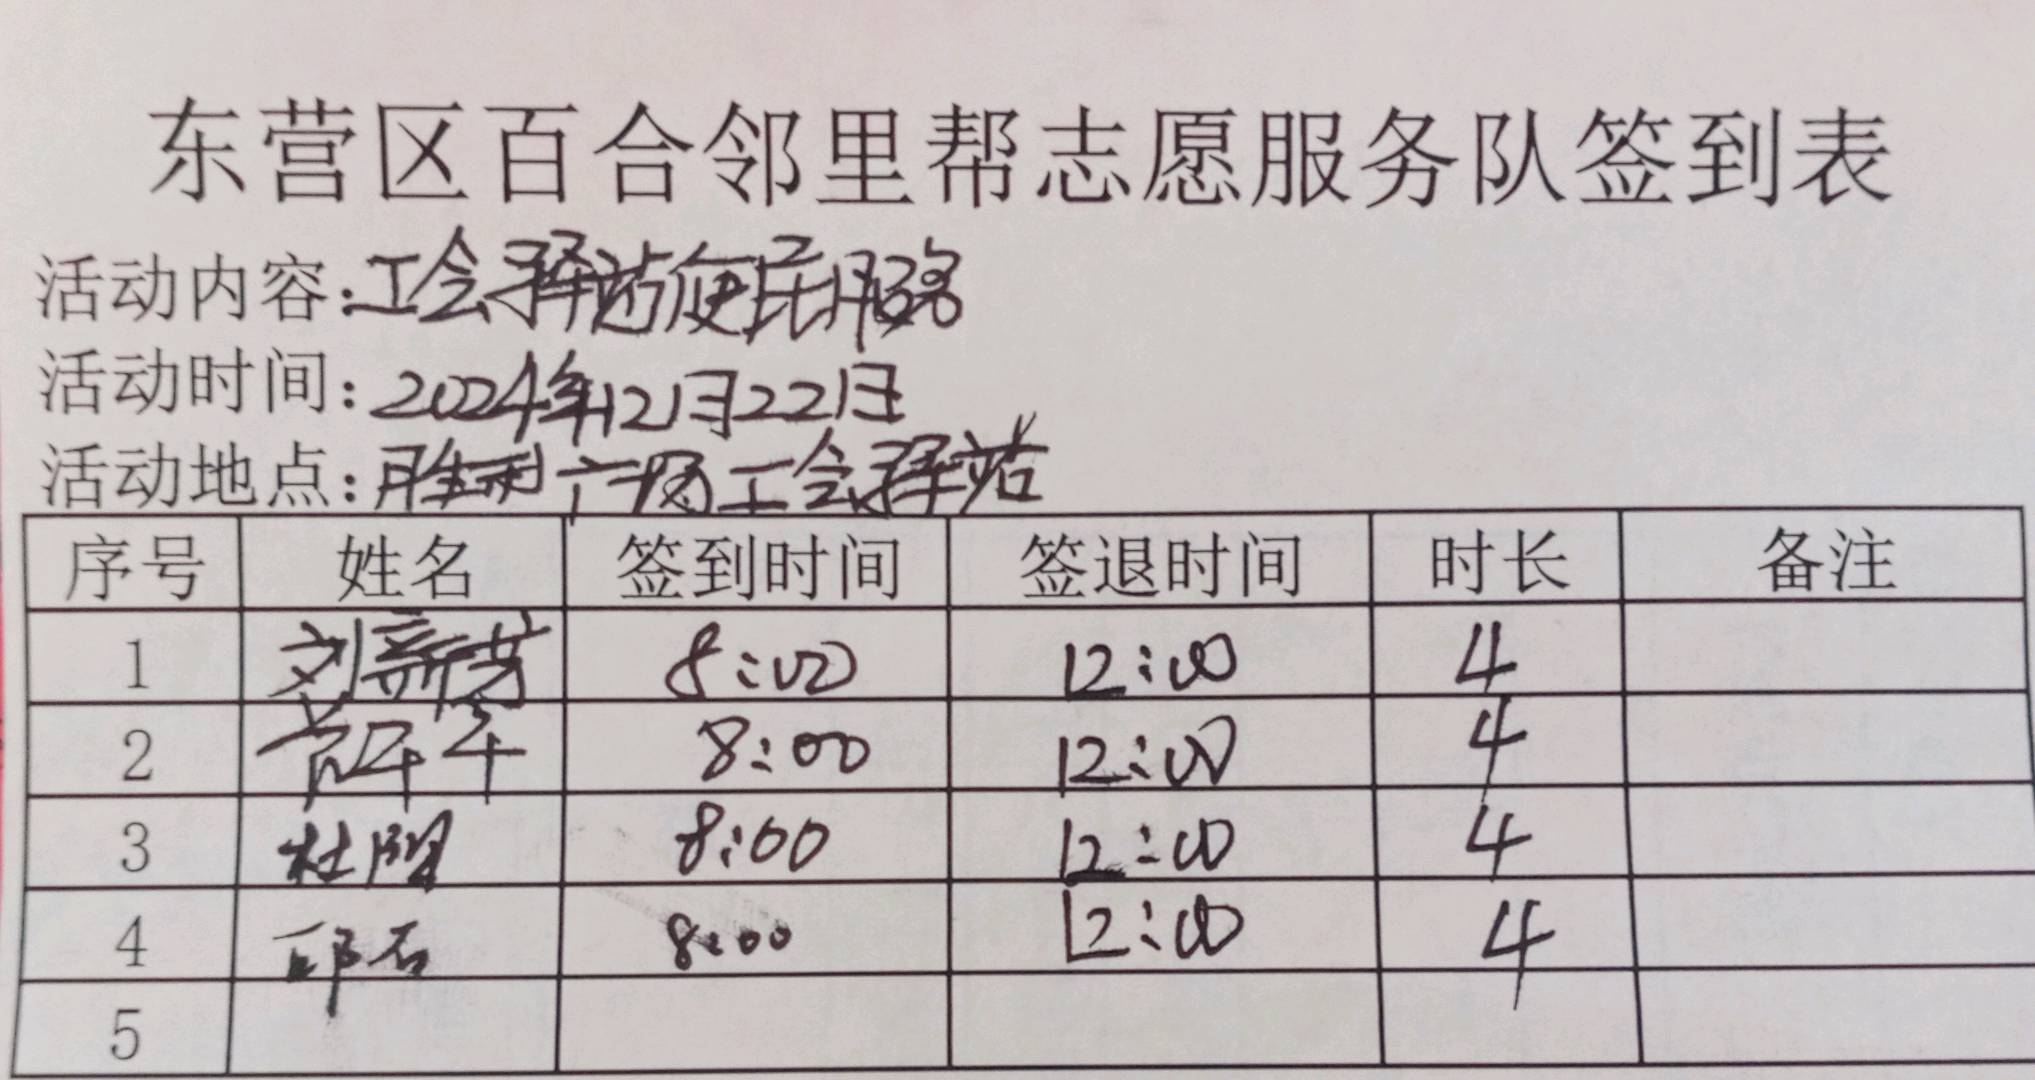 东营区百合邻里帮志愿服务队签到表
活动内容:工会驿站便民服务
活动时间:2024年12月22日
活动地点:胜利广场工会驿站
序号 姓名 签到时间 签退时间 时长 备注
1 刘新芳 8:00 12:00 4
2 8:00 12:00 4
3 杜 8:00 12:00 4
4 8:00 12:00 4
5